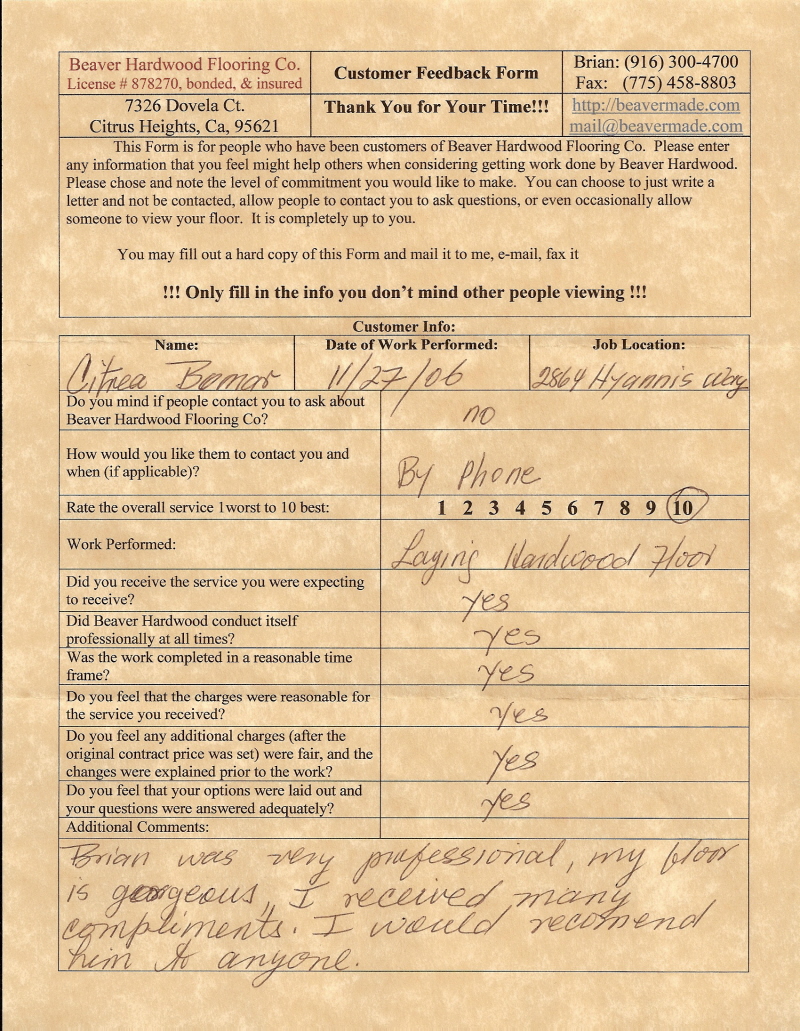 Beaver Hardwood Flooring Co.
License # 878270, bonded, & insured
Customer Feedback Form
Brian: (916) 300-4700
Fax: (775) 458-8803
7326 Dovela Ct.
Citrus Heights, Ca, 95621
Thank You for Your Time!!!
http://beavermade.com
mail@beavermade.com
This Form is for people who have been customers of Beaver Hardwood Flooring Co. Please enter
any information that you feel might help others when considering getting work done by Beaver Hardwood.
Please chose and note the level of commitment you would like to make. You can choose to just write a
letter and not be contacted, allow people to contact you to ask questions, or even occasionally allow
someone to view your floor. It is completely up to you.
You may fill out a hard copy of this Form and mail it to me, e-mail, fax it
!!! Only fill in the info you don't mind other people viewing !!!
Customer Info:
Name:
Date of Work Performed:
Job Location:
Citrea Bomar
11/27/06
2864 Hyannis Way
Do you mind if people contact you to ask about
Beaver Hardwood Flooring Co?
no
How would you like them to contact you and
when (if applicable)?
By Phone
Rate the overall service 1worst to 10 best:
1 2 3 4 5 6 7 8 9 10
Work Performed:
Laying Hardwood Floor
Did you receive the service you were expecting
to receive?
yes
Did Beaver Hardwood conduct itself
professionally at all times?
yes
Was the work completed in a reasonable time
frame?
yes
Do you feel that the charges were reasonable for
the service you received?
yes
Do you feel any additional charges (after the
original contract price was set) were fair, and the
changes were explained prior to the work?
yes
Do you feel that your options were laid out and
your questions were answered adequately?
yes
Additional Comments:
Brian was very professional, my floor
is gorgeous, I received many
compliments. I would recomend
him to anyone.